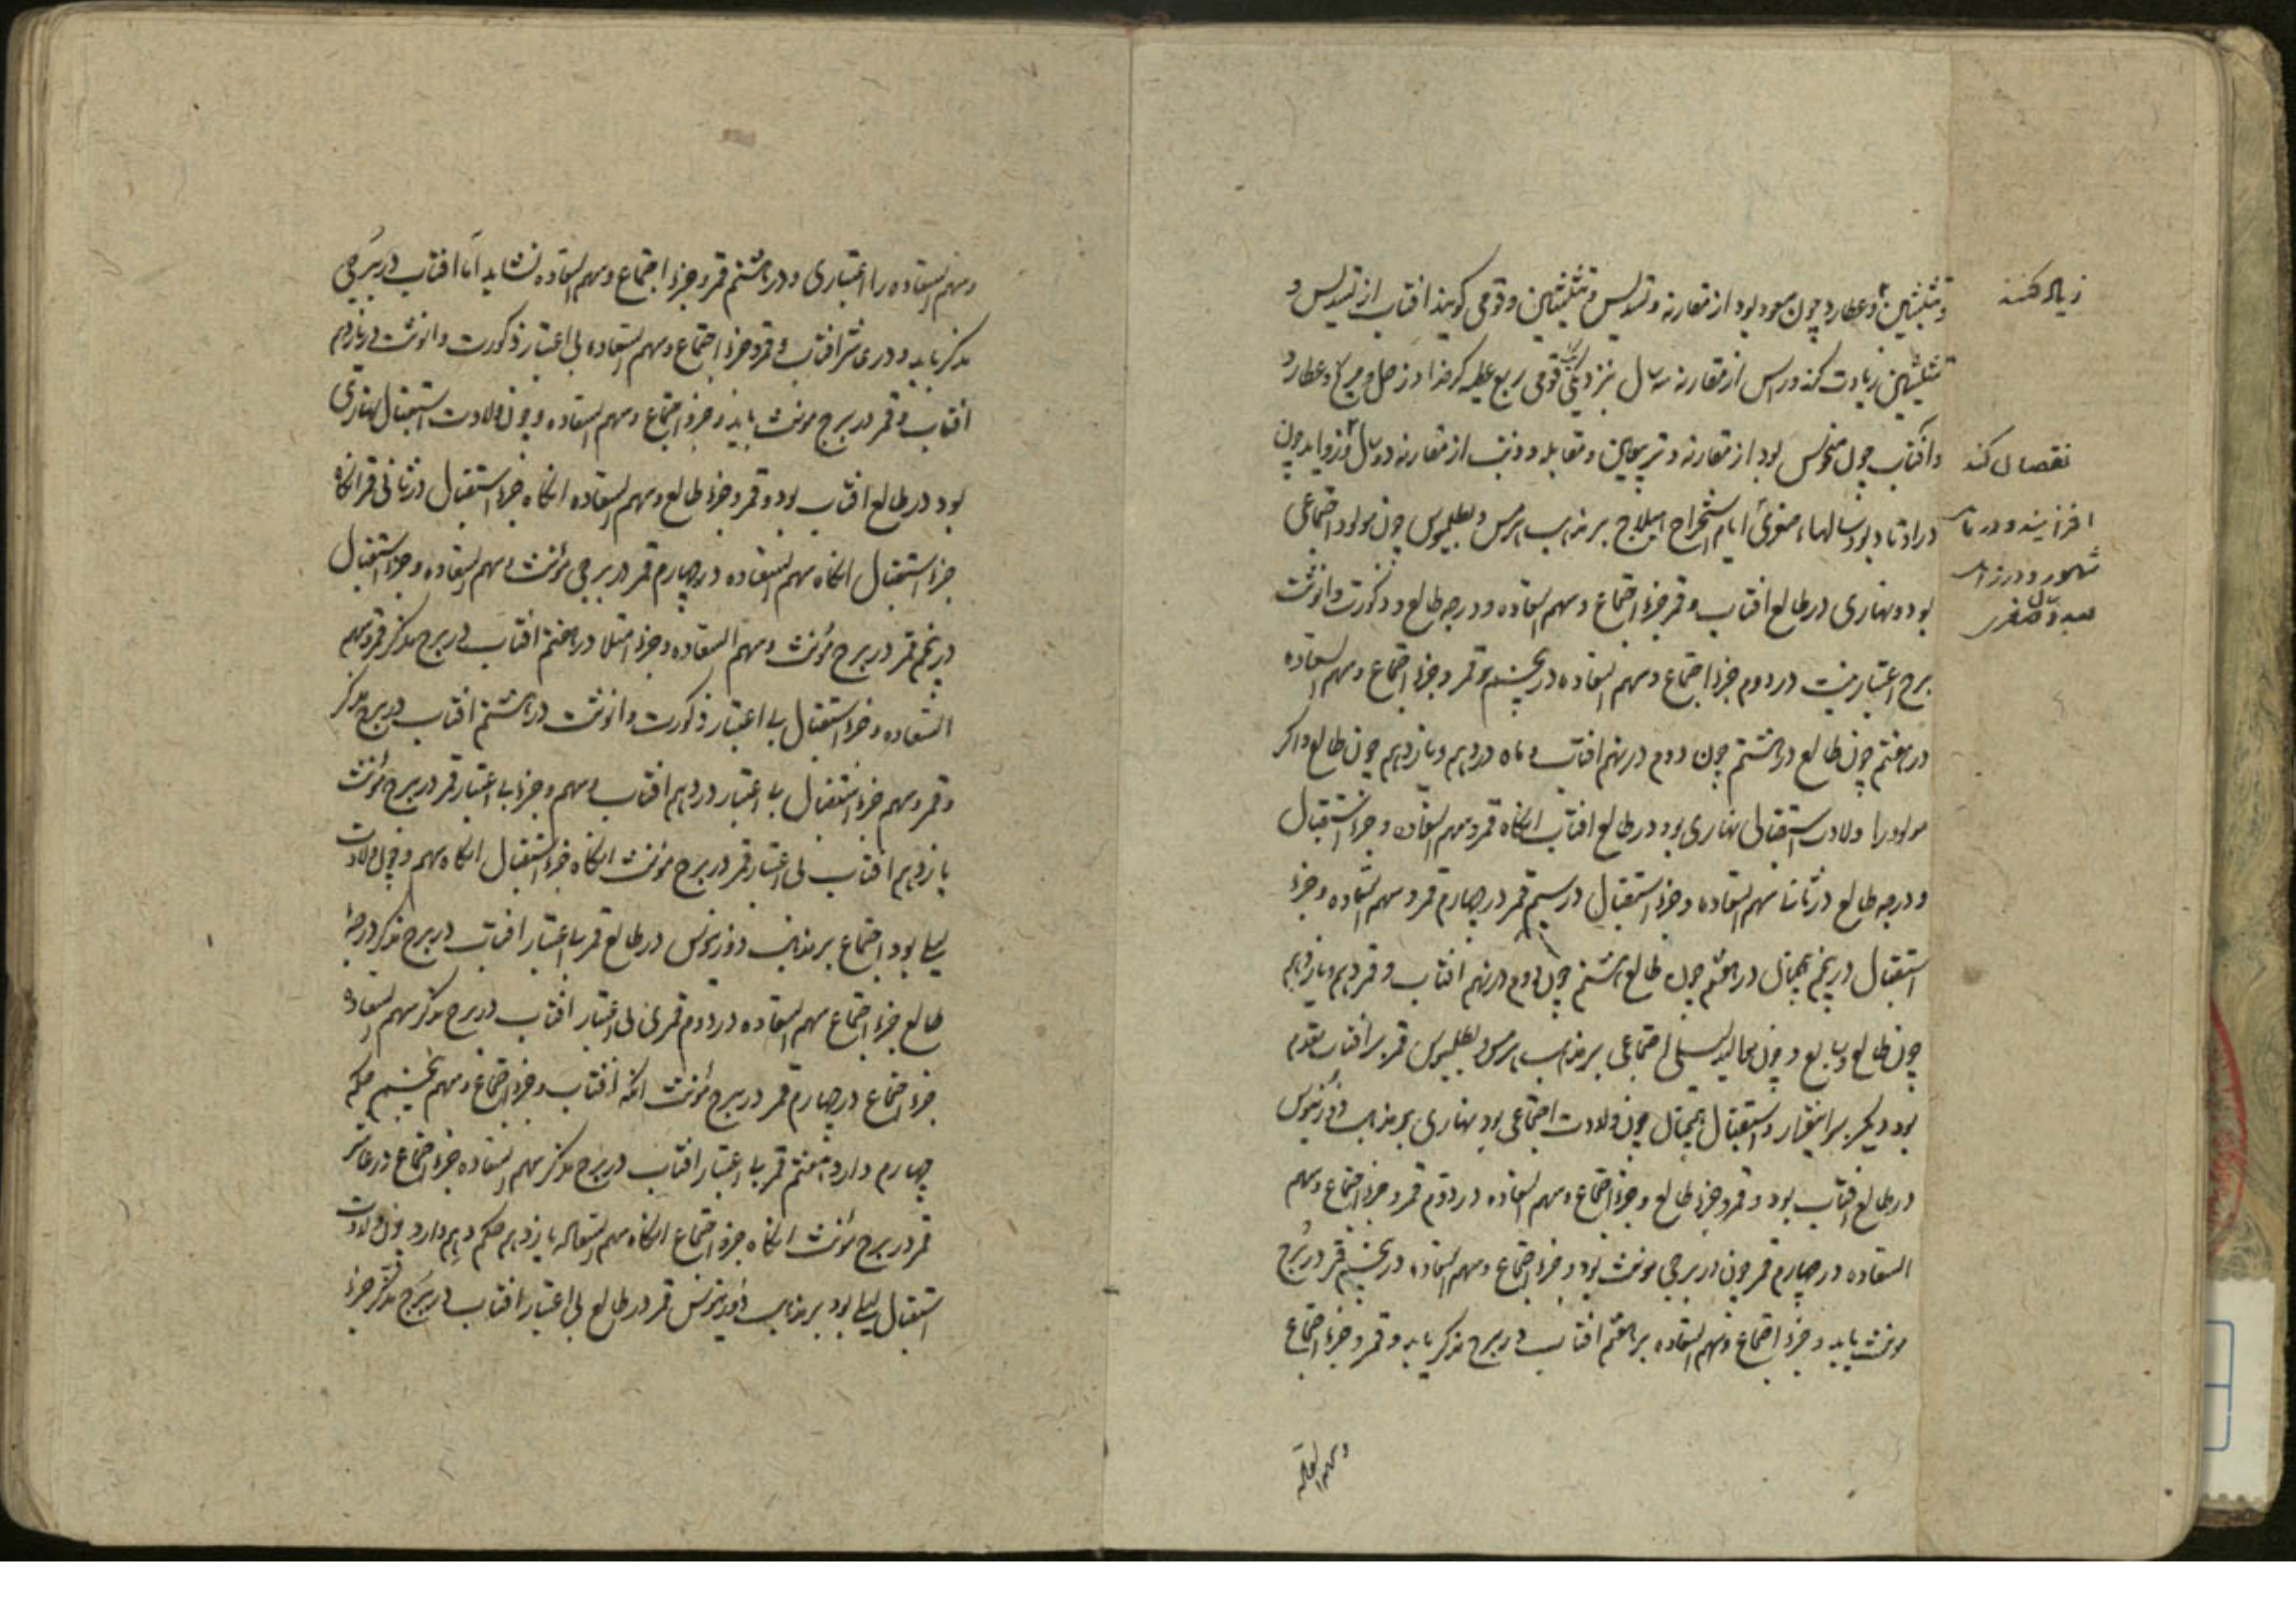 و تثلیثین و عطارد چون مسعود بود از مقارنه و تسدیس و تثلیثین و قومی کویند افتاب از تسدیس و
زیاله کنند
تثلیثین زیادت کند و راس از مقارنه سه سال نزدیک قومی ربع عطیه کدخدا و زحل و مریخ و عطارد
و افتاب چون منحوس بود از مقارنه و تربیعین و مقابله و ذنب از مقارنه دو سال و زواید چون
نقصان کند
در اوتاد بود سالهاء صغری ایام استخراج هیلاج بر مذهب هرمس و بطلمیوس چون مولود اجتماعی
افزایند و در
شهور و در
صغری
بود و نهاری در طالع افتاب و قمر جزء اجتماع و سهم السعاده و درجه طالع و ذکورت و انوثت
برج اعتبار نیست در دوم جزء اجتماع و سهم السعاده در پنجم قمر و جزء اجتماع و سهم السعاده
در هفتم چون طالع در هشتم چون دوم در نهم افتاب و ماه در دهم و یازدهم چون طالع و اکر
مولود را ولادت استقبالی نهاری بود در طالع افتاب انکاه قمر و سهم السعاده و جزء استقبال
و درجه طالع در سهم السعاده و جزء استقبال در سیم قمر در چهارم قمر و سهم السعاده و جزء
استقبال در پنجم همچنان در هفتم چون طالع هشتم چون دوم در نهم افتاب و قمر دهم و یازدهم
چون طالع و سابع و چون موالید لیلی اجتماعی بر مذهب هرمس و بطلمیوس قمر بر افتاب مقدم
بود دیکر بر اینقرار و استقبال همچنان چون ولادت اجتماعی بود نهاری بر مذهب
در طالع افتاب بود و قمر و جزء طالع و جزء اجتماع و سهم السعاده در دوم قمر و جزء اجتماع و سهم
السعاده در چهارم قمر چون در برجی مونث بود و جزء اجتماع و سهم السعاده در پنجم قمر در برج
مونث باید و جزء اجتماع و سهم السعاده در هفتم افتاب در برج مذکر باید و قمر و جزء اجتماع
و سهم السعاده
و سهم السعاده را اعتباری و در هشتم قمر و جزء اجتماع و سهم السعاده نشاید اما افتاب در برجی
مذکر باید و در عاشر افتاب و قمر و جزء اجتماع و سهم السعاده بی اعتبار ذکورت و انوثت در یازدهم
افتاب و قمر در برج مونث باید و جزء اجتماع و سهم السعاده و چون ولادت استقبال نهاری
بود در طالع افتاب بود و قمر و جزء طالع و سهم السعاده انکاه جزء استقبال در ثانی قمر انکاه
جزء استقبال انکاه سهم السعاده در چهارم قمر در برجی مونث و سهم السعاده و جزء استقبال
در پنجم قمر در برج مونث و سهم السعاده و جزء امتلا در هفتم افتاب در برج مذکر قمر و سهم
السعاده و جزء استقبال بی اعتبار ذکورت و انوثت در هشتم افتاب در برج مذکر
و قمر و سهم جزء استقبال بی اعتبار در دهم افتاب و سهم و جزء بی اعتبار قمر در برج مونث
یازدهم افتاب بی اعتبار قمر در برج مونث انکاه جزء استقبال انکاه سهم و چون ولادت
لیلی بود اجتماع بر مذهب در طالع قمر بی اعتبار افتاب در برج مذکر درجه
طالع جزء اجتماع سهم السعاده در دوم قمر بی اعتبار افتاب در برج مذکر سهم السعاده
جزء اجتماع در چهارم قمر در برج مونث افتاب و جزء اجتماع و سهم پنجم حکم
چهارم دارد هفتم قمر بی اعتبار افتاب در برج مذکر سهم السعاده جزء اجتماع در عاشر
قمر در برج مونث انکاه جزء اجتماع انکاه سهم السعاده یازدهم حکم دهم دارد چون ولادت
استقبال لیلی بود بر مذهب قمر در طالع بی اعتبار افتاب در برج مذکر جزء